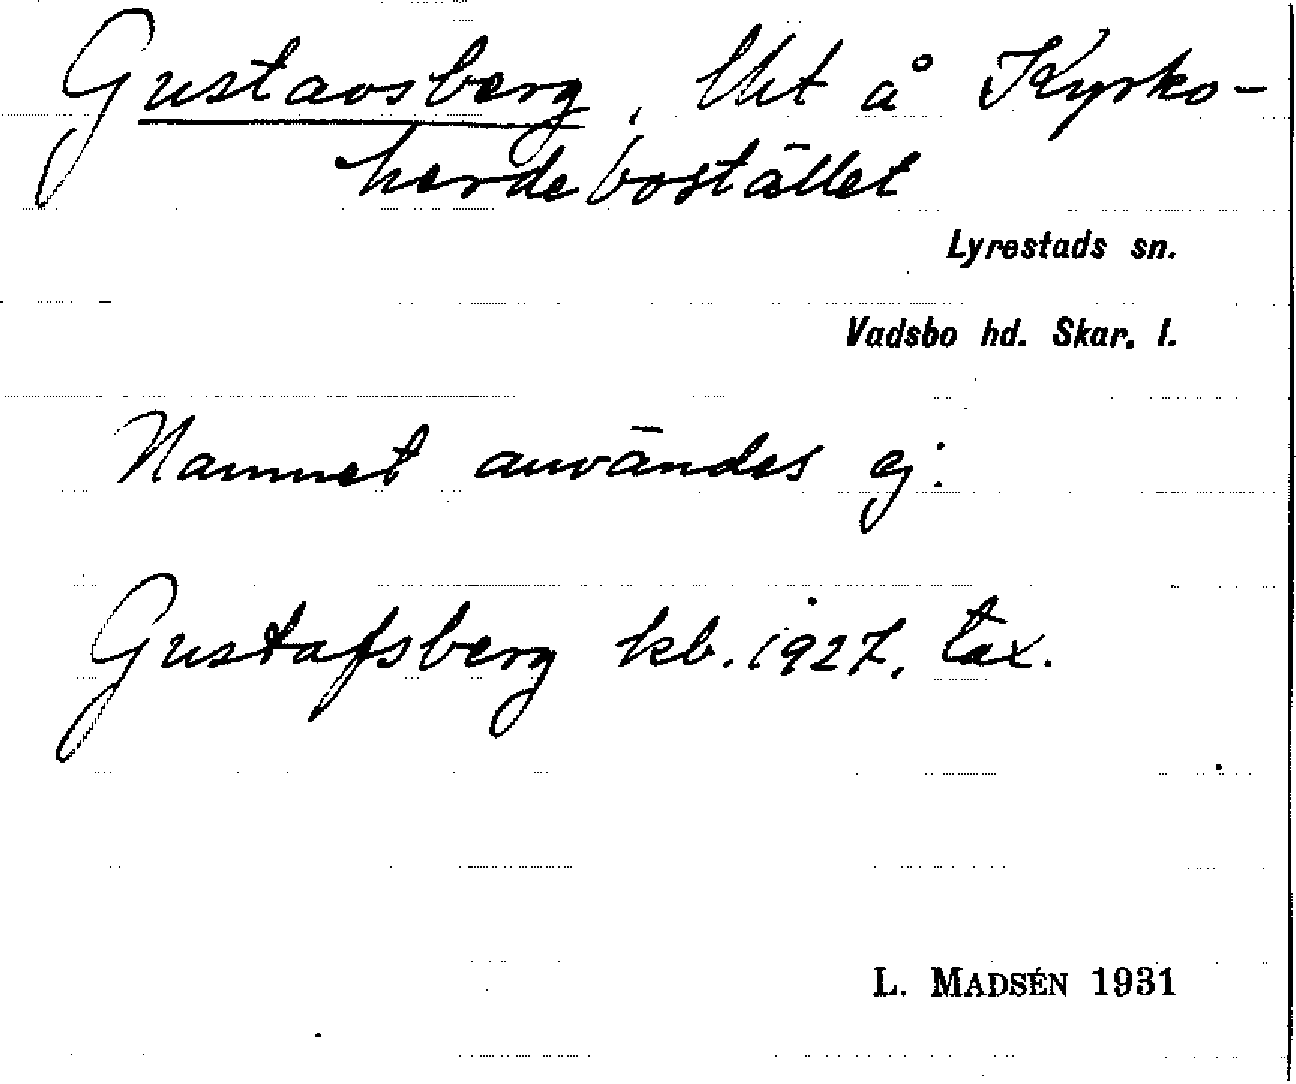 Gustavsberg, lht å Kyrko-
herdebostället
Lyrestads sn.
Vadsbo hd. Skar. l.
Namnet användes ej.
Gustafsberg kb. 1927, tax.
L. MADSÉN 1931